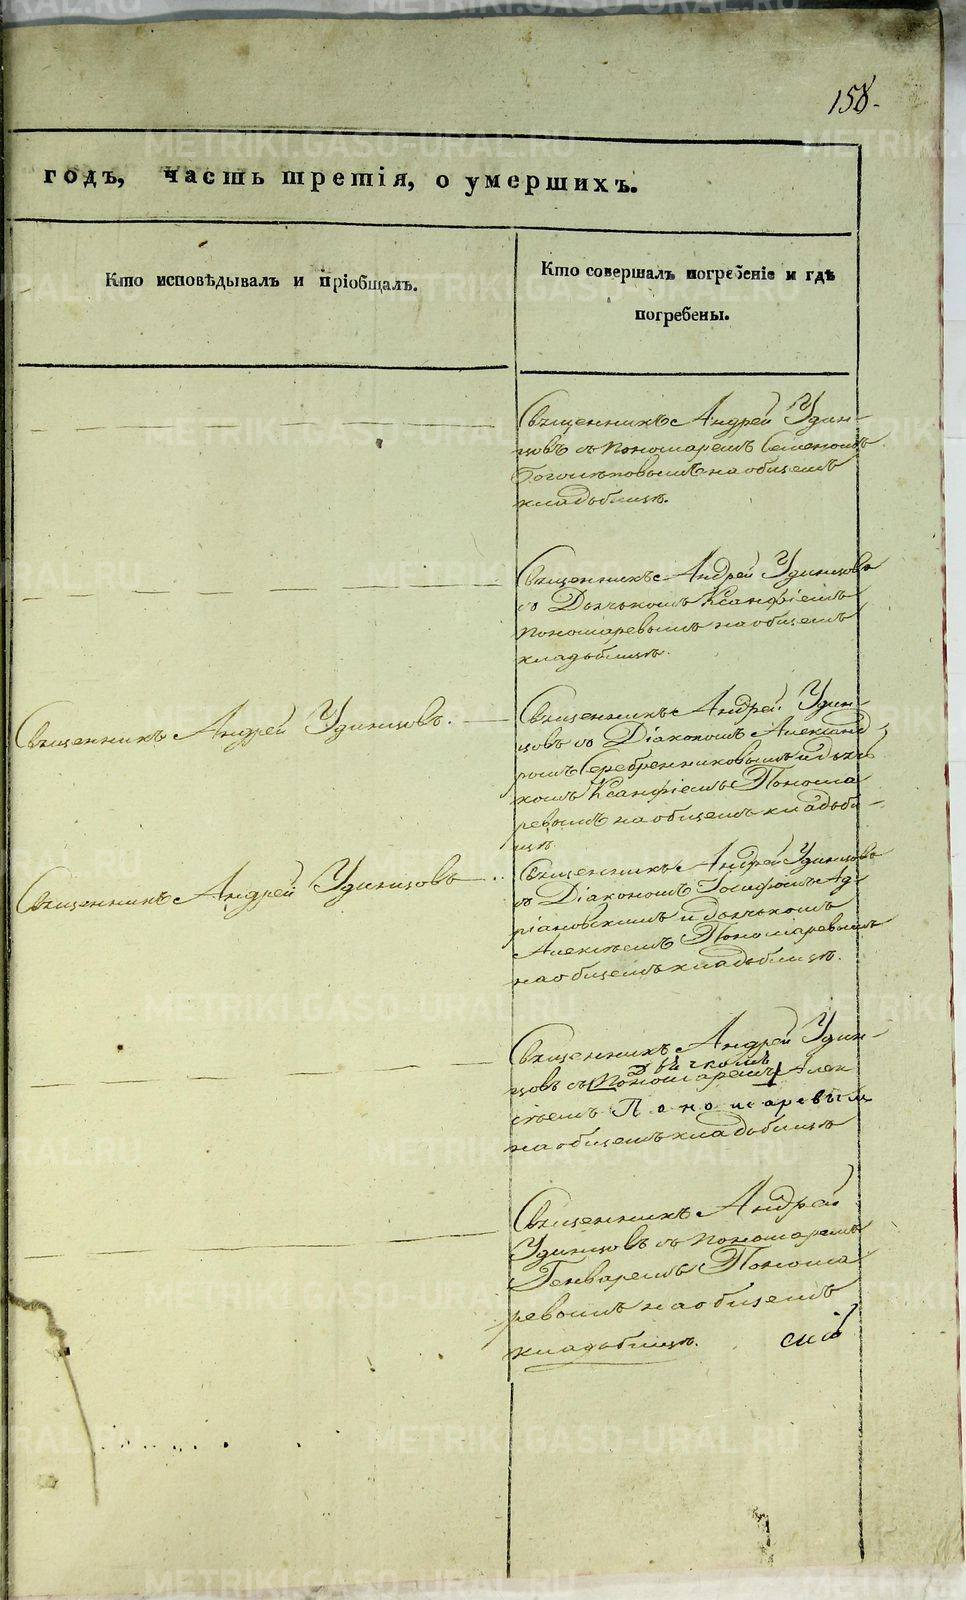 158.
годъ, часть третія, о умершихъ.
Кто исповѣдывалъ и пріобщалъ.
Кто совершалъ погребеніе и гдѣ
погребены.
Священникъ Андрей Удин-
цовъ съ пономаремъ Семеномъ
на общемъ
кладьбищѣ.
Священникъ Андрей Удинцовъ
съ Дьячькомъ Ксанфіемъ
Пономаревымъ на общемъ
кладьбищѣ.
Священникъ Андрей Удинцовъ.
Священникъ Андрей Удин-
цовъ съ Діакономъ Александ
ромъ Серебренниковымъ и дьяч
комъ Ксанфіемъ Понома
ревымъ на общемъ кладьби-
щѣ.
Священникъ Андрей Удинцовъ
Священникъ Андрей Удинцовъ
съ Діакономъ Іосифомъ Ад-
ріановскимъ и дьячькомъ
Алексѣемъ Пономаревымъ
на общемъ кладьбищѣ.
Священникъ Андрей Удин-
дьячкомъ
цовъ съ пономаремъ Алек
сѣемъ Пономаревым
на общемъ кладьбищѣ
Священникъ Андрей
Удинцовъ съ пономаремъ
Генваремъ Понома
ревымъ на общемъ
кладьбищѣ.
METRIKI.GASO-URAL.RU